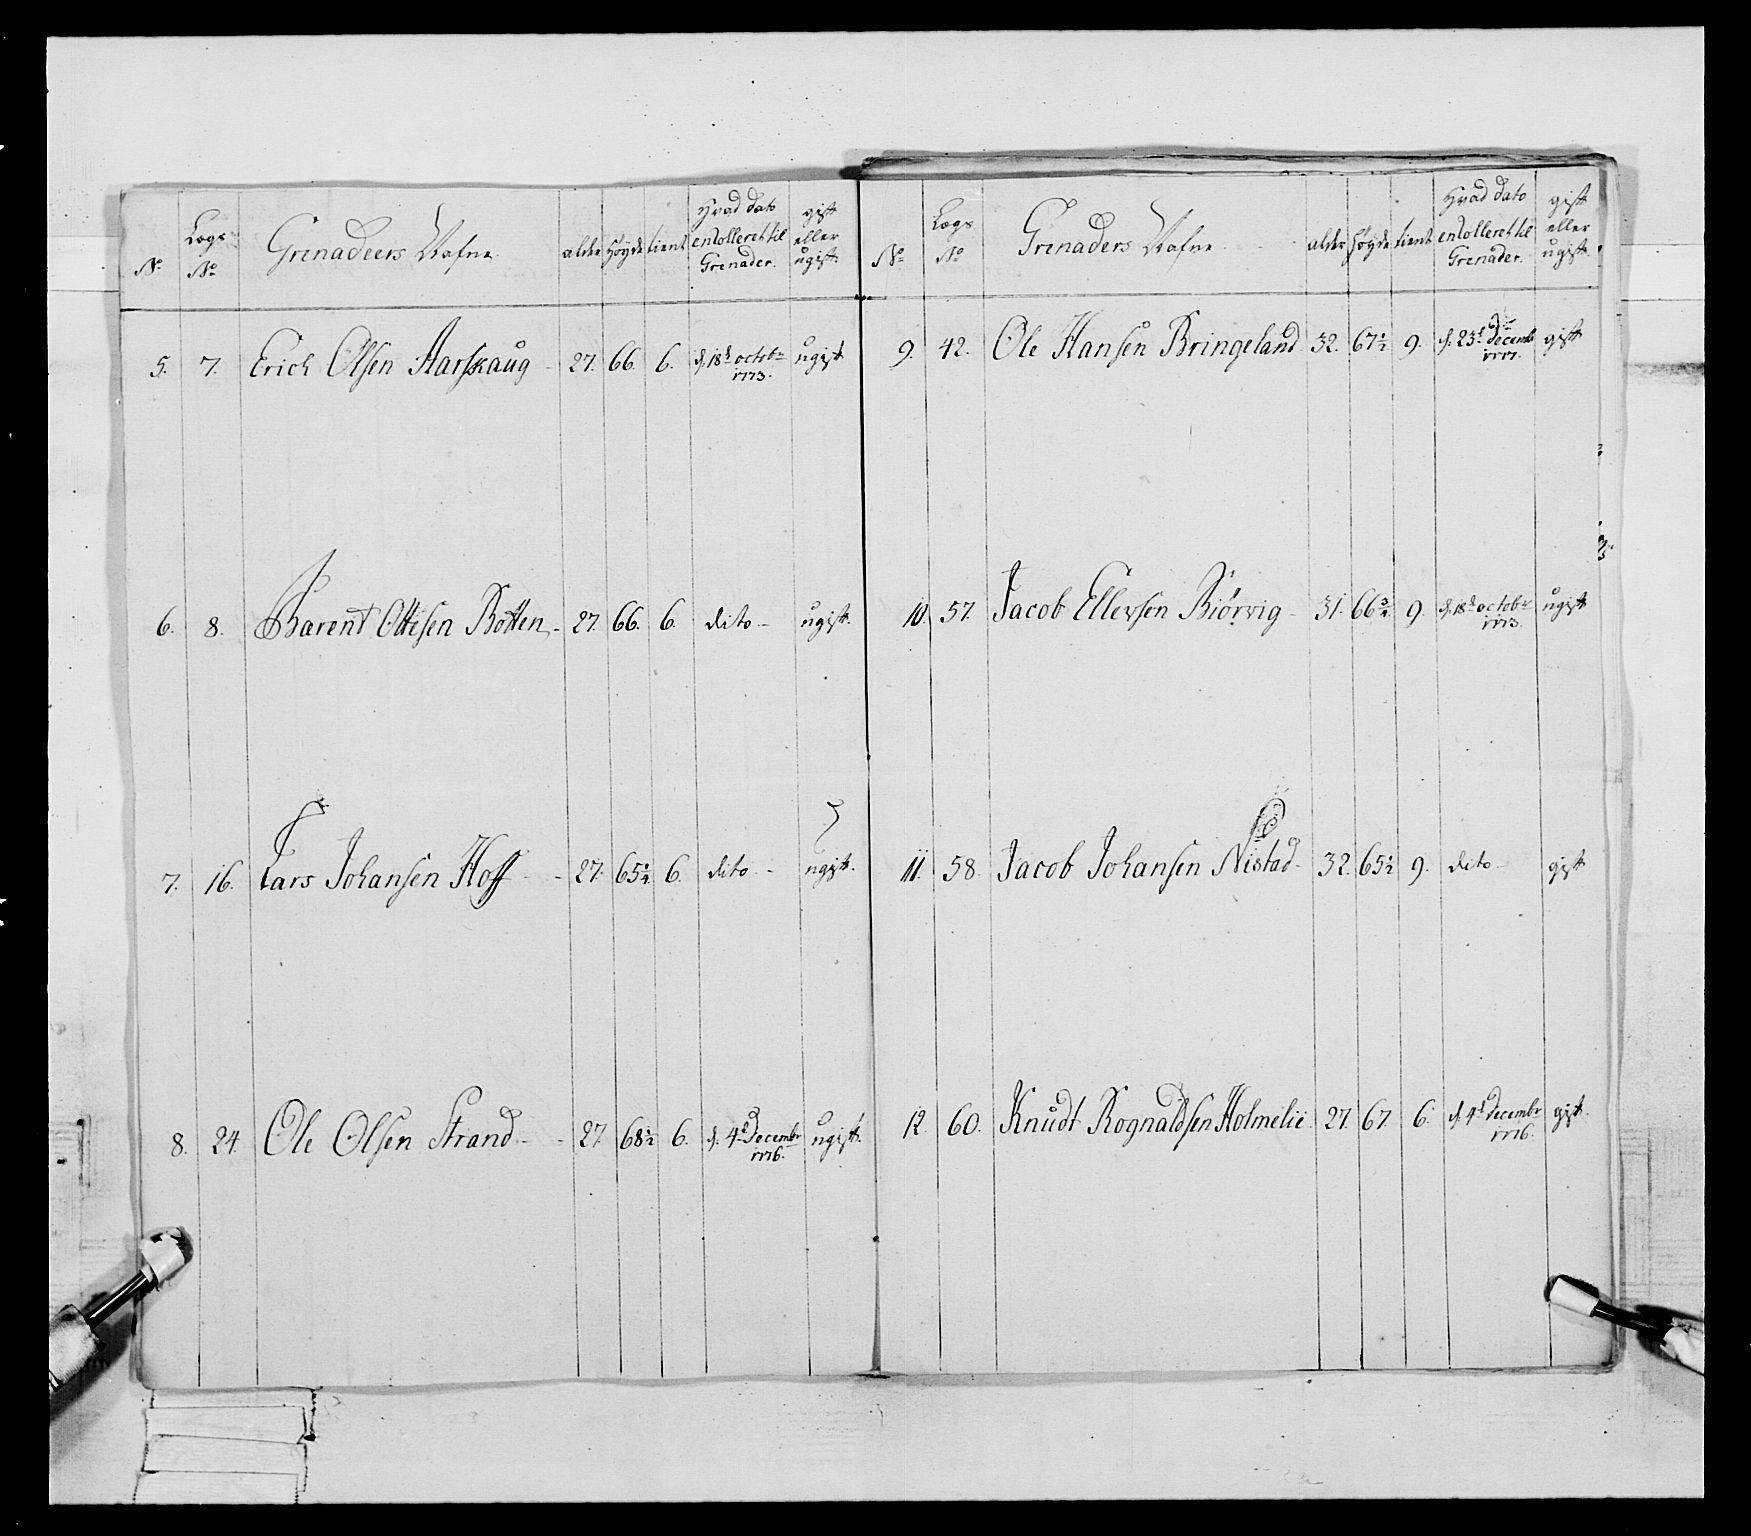 No Lægs No Grenadeers Nafne alder Høyde tient Hvad dato enRolleret til Grenader. gift eller ugift.
5. 7. Erich Olsen Aarskaug 27. 66. 6. d. 18d octobr 1773. ugift
6. 8. Barent Ottesen Botten 27. 66. 6. dito ugift.
7. 16. Lars Johansen Hoff 27. 65 1/4 6. dito ugift.
8. 24. Ole Olsen Strand 27. 68 1/2 6. d. 4d Decembr 1776. ugift.
No Lægs No Grenaders Nafne alder Høyde tient Hvad dato enRolleret til Grenader. gift eller ugift.
9. 42. Ole Hansen Bringeland 32. 67 1/2 9. d. 23d Decembr 1777. gift
10. 57. Jacob Ellevsen Biørvig 31. 66 3/4 9. d. 18d octobr 1773. ugift
11. 58. Jacob Johansen Nistad 32. 65 1/2 9. dito gift
12. 60. Knudt Rognaldsen Holmelie 27. 67. 6. d. 4d decembr 1776. gift.